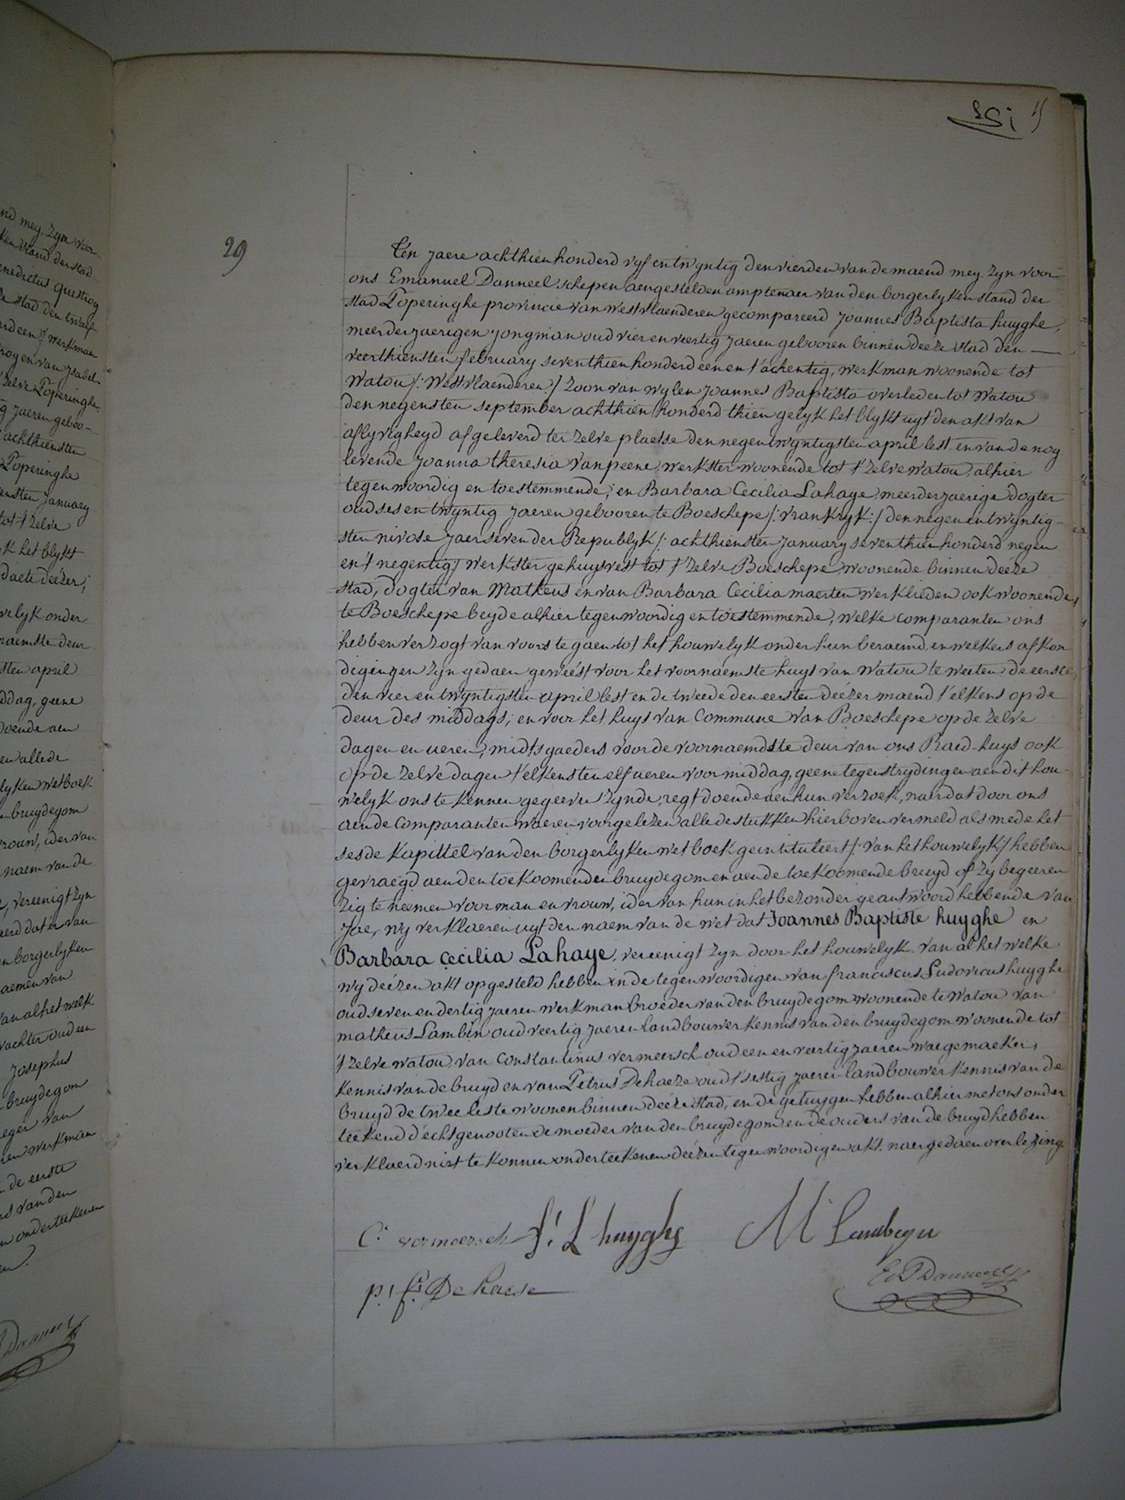 29
Ten jaere achthien honderd vyf en twyntig den vierden van de maend mey zyn voor
ons Emanuel Danneel schepen aengestelden amptenaer van den borgerlyken stand der
stad Poperinghe provincie van westvlaenderen gecompareerd Joannes Baptista huyghe,
meerderjaerigen jongman oud vier en veertig jaeren gebooren binnen deeze stad den
veerthiensten february seventhien honderd een en t'achentig, werkman woonende tot
Watou /: Westvlaenderen :/ zoon van wylen Joannes Baptista overleden tot Watou
den negensten september achthien honderd thien gelyk het blykt uyt den act van
aflyvigheyd afgeleverd ter zelve plaetse den negentwyntigsten april lest en van de nog
levende Joanna theresia vanpeene, werkster woonende tot t'zelve watou, alhier
tegenwoordig en toestemmende; en Barbara Cecilia Lahaye, meerderjaerige dogter
oud ses en twyntig jaeren gebooren te Boeschepe /: vrankryk :/ den negenentwyntig-
sten nivose jaer seven der Republyk /: achthiensten january seventhien honderd negen
en t'negentig :/ werkster gehuysvest tot t'zelve Boeschepe woonende binnen deeze
stad, dogter van Matheus en van Barbara Cecilia maerten werklieden ook woonende
te Boeschepe beyde alhier tegenwoordig en toestemmende, welke comparanten ons
hebben verzogt van voorts te gaen tot het houwelyk onder hun beraemd, en welkers afkon
digingen zyn gedaen geweest voor het voornaemste huys van Watou te weeten de eerste
den vier en twyntigsten april lest en de tweede den eersten deezer maend t'elkens op de
deur des middags, en voor het huys van Commune van Boeschepe op de zelve
dagen en ueren, midtsgaeders voor de voornaemste deur van ons Raed-huys ook
op de zelve dagen t'elkensten elf ueren voor middag, geene tegenstrydingen aen dit hou-
welyk ons te kennen gegeeven zynde, regt doende aen hun verzoek, naer dat door ons
aen de Comparanten waeren voorgelezen alle de stukken hierboven vermeld als mede het
sesde kapittel van den borgerlyken wetboek geintituleert /: van het houwelyk :/ hebben
gevraegd aen den toekoomenden bruydegom en aen de toekoomende bruyd of zy begeeren
zig te neemen voor man en vrouw, ider van hun in het bezonder geantwoord hebbende van
jae, wy verklaeren uyt den naem van de wet dat Joannes Baptiste huyghe en
Barbara Cecilia Lahaye, vereenigt zyn door het houwelyk. van al het welke
wy deezen akt opgesteld hebben in de tegenwoordigen van franciscus Ludovicus huyghe
oud seven en dertig jaeren werkman broeder van den bruydegom woonende te Watou van
matheus Lambin oud veertig jaeren landbouwer kennis van den bruydegom woonende tot
t'zelve watou van Constantinus vermeersch oud een en veertig jaeren waegemaeker,
kennis van de bruyd en van Petrus Dehaeze oud t'sestig jaeren landbouwer kennis van de
bruyd de twee leste woonen binnen deeze stad, en de getuygen hebben alhier met ons onder
teekend d'echtgenooten de moeder van den bruydegom en de ouders van de bruyd hebben
verklaerd niet te konnen onderteekenen deezen tegenwoordigen akt. naer gedaen overlezing
C: vermeersch f: L huyghe M: Lambeyn
p: f: De haese